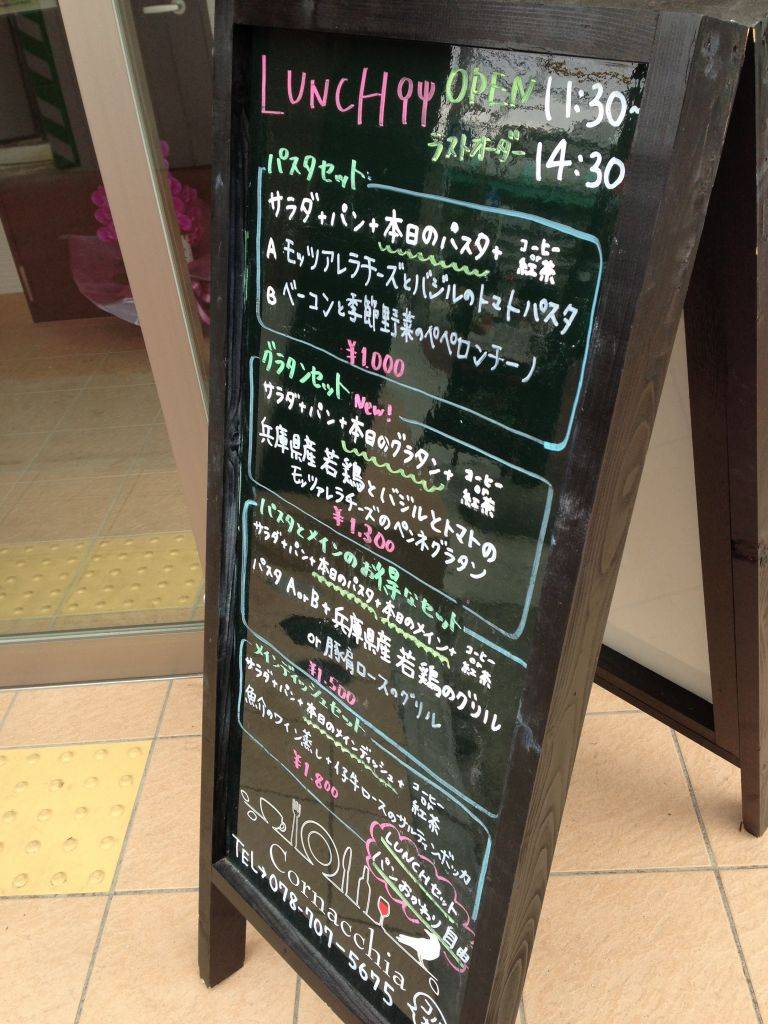 LUNCH OPEN 11:30~
ラストオーダー 14:30
パスタセット
サラダ+パン+本日のパスタ+コーヒー or 紅茶
A モッツアレラチーズとバジルのトマトパスタ
B ベーコンと季節野菜のペペロンチーノ
¥1.000
グラタンセット New!
サラダ+パン+本日のグラタン+コーヒー or 紅茶
兵庫県産若鶏とバジルとトマトの
モッツァレラチーズのペンネグラタン
¥1.300
パスタとメインのお得なセット
サラダ+パン+本日のパスタ+本日のメイン+コーヒー or 紅茶
パスタ A or B + 兵庫県産若鶏のグリル
or 豚肩ロースのグリル
¥1.500
メインディッシュセット
サラダ+パン+本日のメインディシュ+コーヒー or 紅茶
魚介のワイン蒸し+仔牛ロースのサルティンボッカ
¥1.800
LUNCHセット
パンおかわり自由
Cornacchia
TEL→078-707-5675